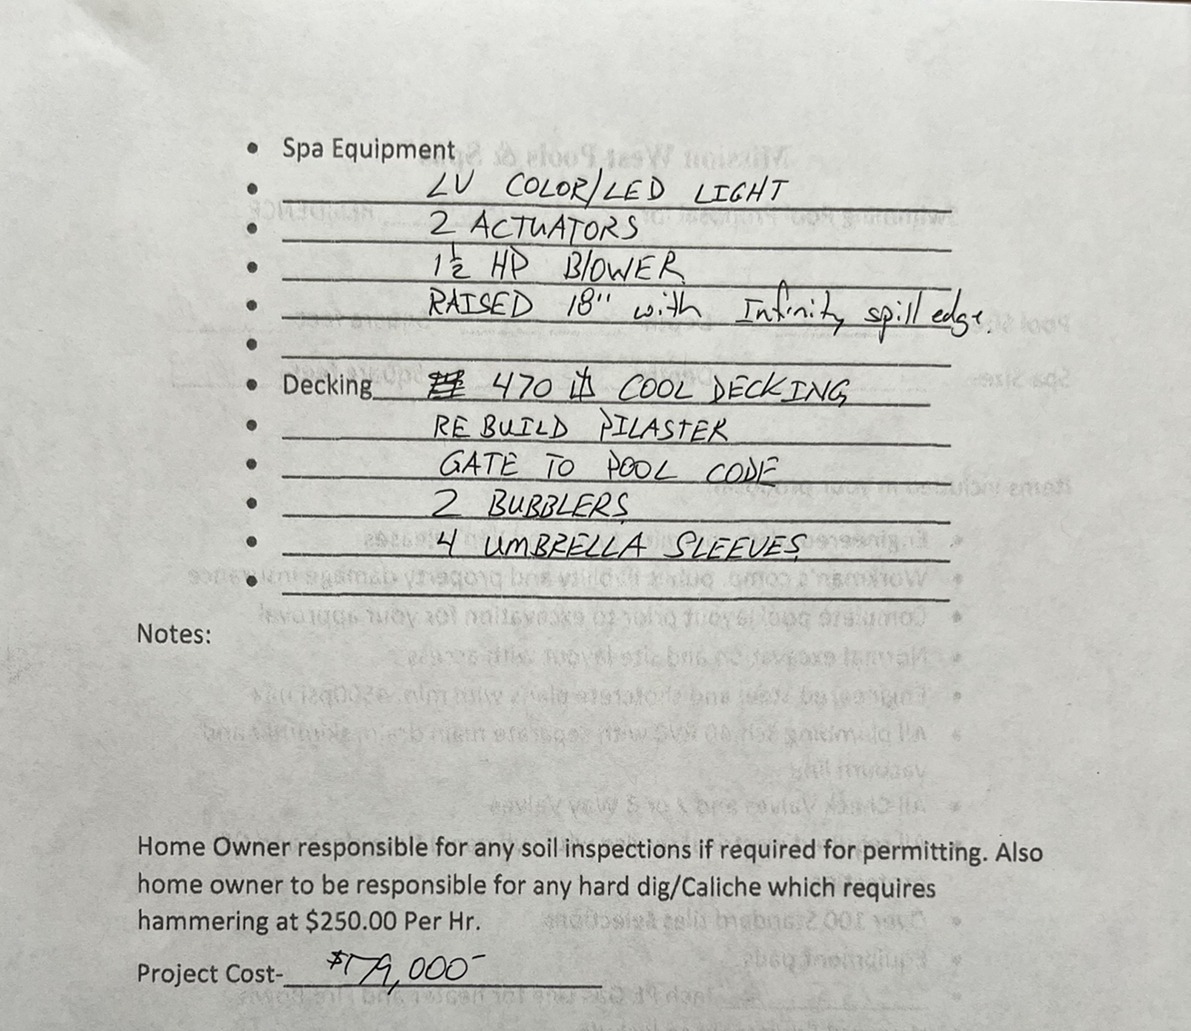 • Spa Equipment
• LV COLOR/LED LIGHT
• 2 ACTUATORS
• 1½ HP BLOWER
• RAISED 18" with Infinity spill edge.
•
• Decking 470 COOL DECKING
• REBUILD PILASTER
• GATE TO POOL CODE
• 2 BUBBLERS
• 4 UMBRELLA SLEEVES
•
Notes:
Home Owner responsible for any soil inspections if required for permitting. Also
home owner to be responsible for any hard dig/Caliche which requires
hammering at $250.00 Per Hr.
Project Cost-